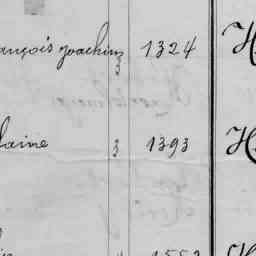 ançois Joachim 3 1324 H
laine 3 1393 H
1553